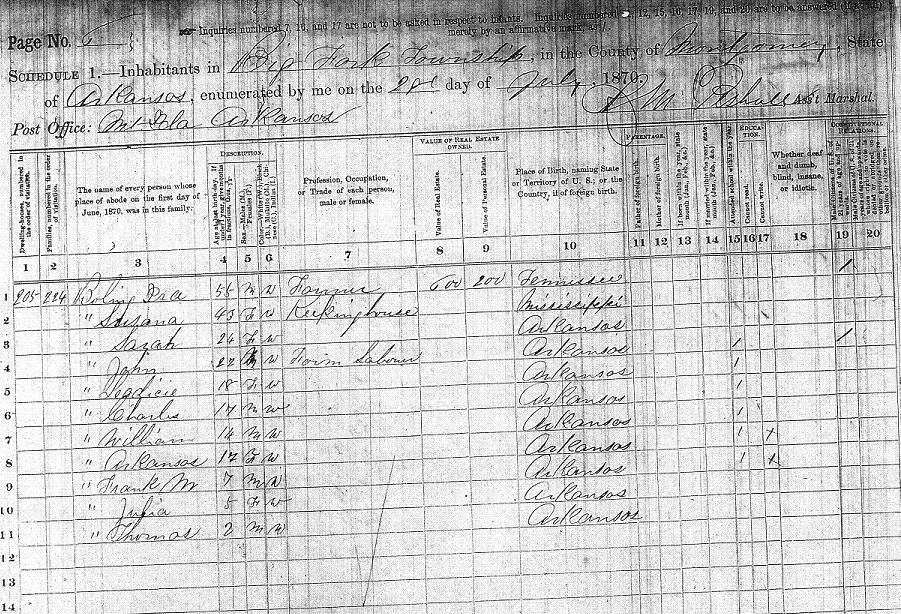 Inquiries numbered 7, 16, and 17 are not to be asked in respect to infants. Inquiries numbered 11, 12, 15, 16, 17, 19, and 20 are to be answered (if at all)
merely by an affirmative mark, as /.
Page No.
SCHEDULE 1.—Inhabitants in Big Fork Township, in the County of Montgomery, State
of Arkansas, enumerated by me on the day of July, 1870.
Post Office: Mt Ida Arkansas Ass't Marshal.
DESCRIPTION. VALUE OF REAL ESTATE OWNED. PARENTAGE. EDUCATION. CONSTITUTIONAL RELATIONS.
Dwelling-houses, numbered in the order of visitation.
Families, numbered in the order of visitation.
The name of every person whose place of abode on the first day of June, 1870, was in this family.
Age at last birth-day. If under 1 year, give months in fractions, thus,
Sex.—Males (M.), Females (F.)
Color.—White (W.), Black (B.), Mulatto (M.), Chinese (C.), Indian (I.)
Profession, Occupation, or Trade of each person, male or female.
Value of Real Estate.
Value of Personal Estate.
Place of Birth, naming State or Territory of U. S.; or the Country, if of foreign birth.
Father of foreign birth.
Mother of foreign birth.
If born within the year, state month (Jan., Feb., &c.)
If married within the year, state month (Jan., Feb., &c.)
Attended school within the year.
Cannot read.
Cannot write.
Whether deaf and dumb, blind, insane, or idiotic.
1 2 3 4 5 6 7 8 9 10 11 12 13 14 15 16 17 18 19 20
1 205 224 Boling Ira 55 M W Farmer 600 200 Tennessee /
2 " Susana 43 F W Keeking house Mississippi
3 " Sarah 24 F W Arkansas
4 " John 22 M W Farm Labour Arkansas / /
5 " 18 F W Arkansas /
6 " Charles 17 M W Arkansas /
7 " William 14 M W Arkansas / x
8 " Arkansas 12 F W Arkansas / x
9 " Frank M 7 M W Arkansas
10 " Julia 5 F W Arkansas
11 " Thomas 2 M W Arkansas
12
13
14